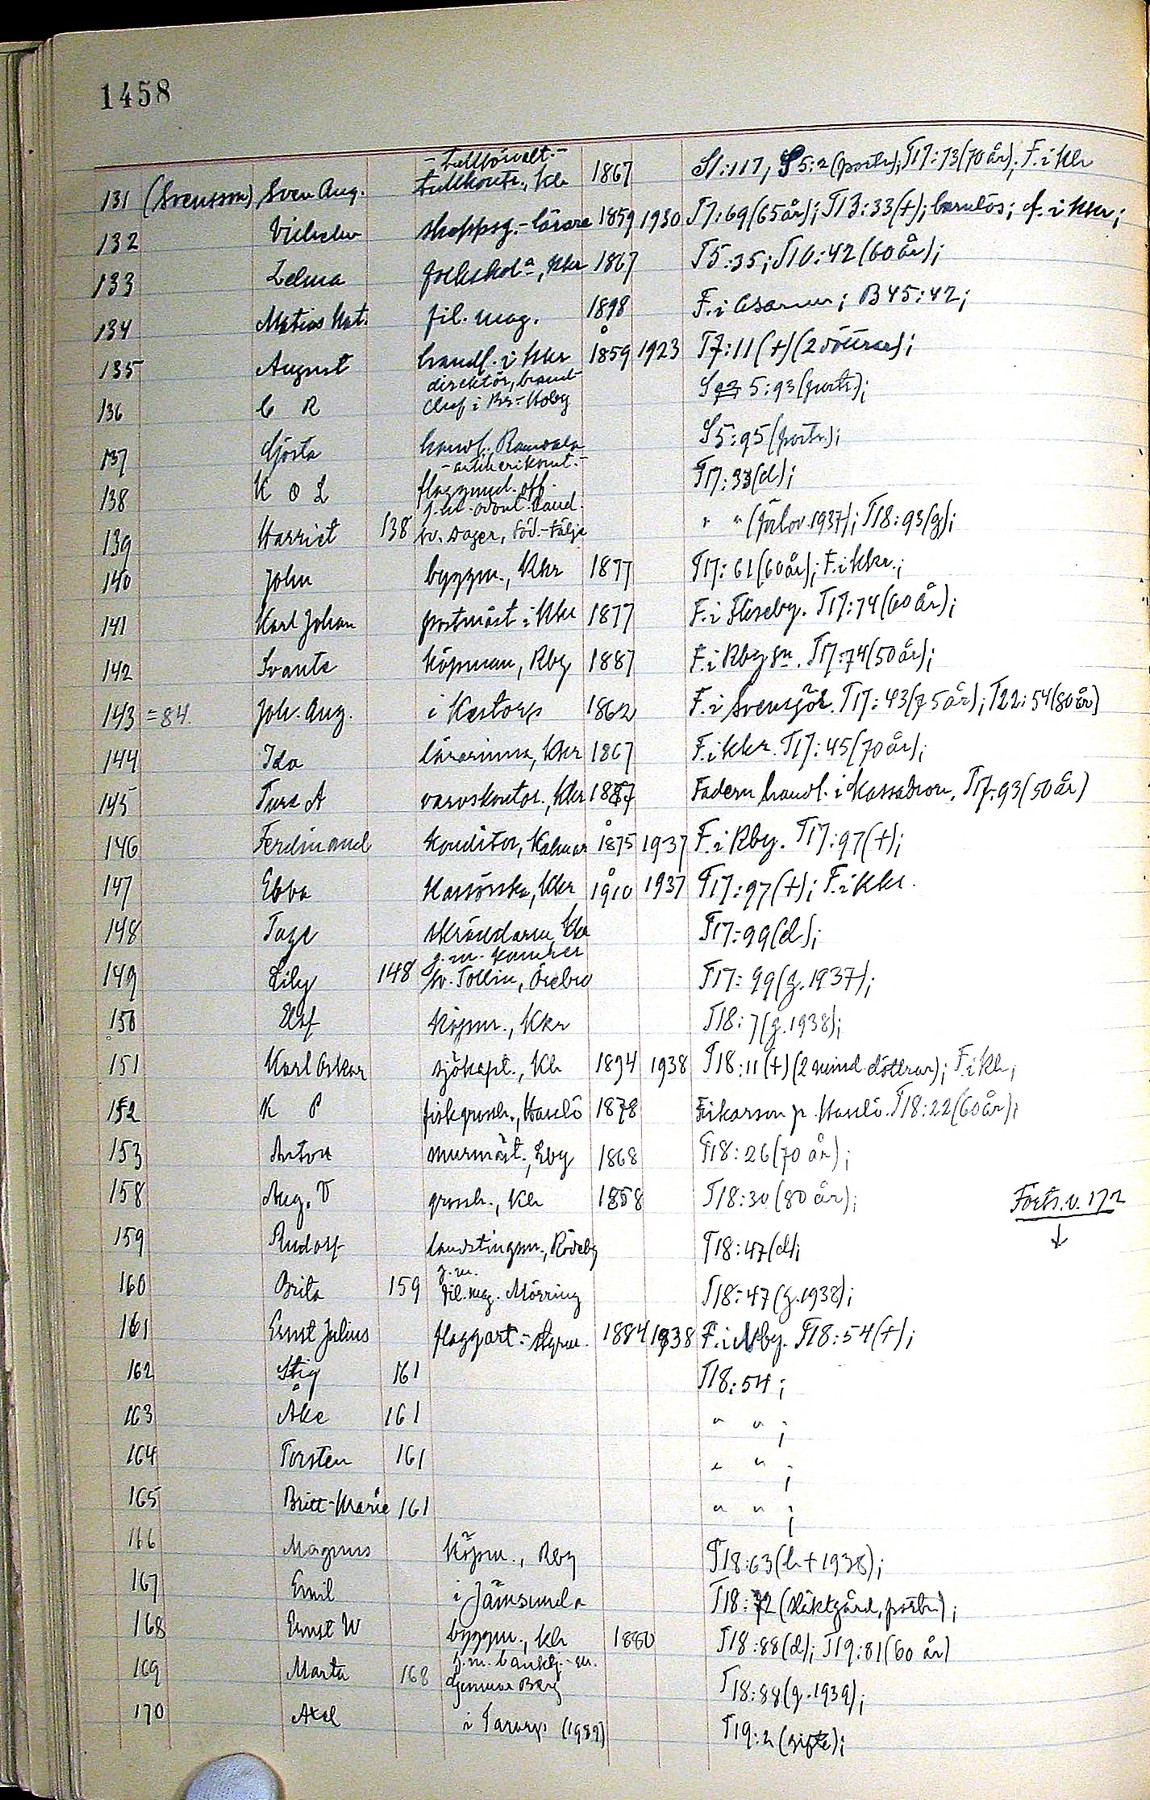 1458
-Tullförvalt.-
131 (Svensson) Sven Aug. tullkontr., Kr 1867 S1:117, S5:2 (portr); T17:73 (70 år); F. i Kkr
132 Vilhelm skeppsg.-lärare 1859 1930 T7:69 (65 år); T13:33 (+); barnlös; f. i Kkr;
133 Zelma folkskol.a, Kkr 1867 T5:35; T10:42 (60 år);
134 Matias Nat. fil. mag. 1898 F. i Asarum; B45:42;
135 August handl. i Kkr 1859 1923 T7:11 (+) (2 döttrar);
direktör, brand-
136 C R chef i Br.-Hoby S 5:93 (portr);
137 Gösta handl., Ramdala S5:95 (portr.);
138 K O L flaggund.off. T17:33 (d);
g.m. odont. kand.
139 Harriet 138 Sv. Dager, Söd.-tälje " " (förlov. 1937); T18:93 (g);
140 John byggm., Kkr 1877 T17:61 (60 år); F. i Kkr.;
141 Karl Johan postmäst. i Kkr 1877 F. i Fliseby. T17:74 (60 år);
142 Svante köpman, Rby 1887 F. i Rby sn. T17:74 (50 år);
143 =84. Joh. Aug. i Kestorp 1862 F. i Svensjöl. T17:43 (75 år); T22:54 (80 år)
144 Ida lärarinna, Kkr 1867 F. i Kkr. T17:45 (70 år);
145 Ture A varvskontor., Kkr 1887 Fadern handl. i Massadron. T17:93 (50 år)
146 Ferdinand konditor, Kalmar 1875 1937 F. i Rby. T17:97 (+);
147 Ebba kassörska, Kkr 1910 1937 T17:97 (+); F. i Kkr.
148 Tage skräddarm. Kkr T17:99 (d);
g.m. kamrer
149 Lily 148 Sv. Tollin, Örebro T17:99 (g. 1937);
150 Elof köpm., Kkr T18:7 (g. 1938);
151 Karl Oskar sjökapt., Kr 1894 1938 T18:11 (+) (2 mind. döttrar); F. i Kr;
152 K P fiskgrossh., Hasslö 1878 Fiskarson p. Hasslö. T18:22 (60 år);
153 Anton murmäst., Rby 1868 T18:26 (70 år);
158 Aug. V grossh., Kr 1858 T18:30 (80 år); Forts. v. 172
159 Rudolf landstingsm., Rödeby T18:47 (d);
g.m.
160 Brita 159 fil. mag. Mörring T18:47 (g. 1938);
161 Ernst Julius flaggart.-styrm. 1884 1938 F. i Nby. T18:54 (+);
162 Stig 161 T18:54;
163 Åke 161 " " ;
164 Torsten 161 " " ;
165 Britt-Marie 161 " " ;
166 Magnus köpm., Rby T18:63 (h + 1938);
167 Emil i Jämsunda T18:72 (släktgård, portr.);
168 Ernst W byggm., Kr 1880 T18:88 (d); T19:81 (60 år)
g.m. banktj.-m.
169 Marta 168 Gunnar Berg T18:88 (g. 1939);
170 Axel i Tararp (1939) T19:2 (gifte);